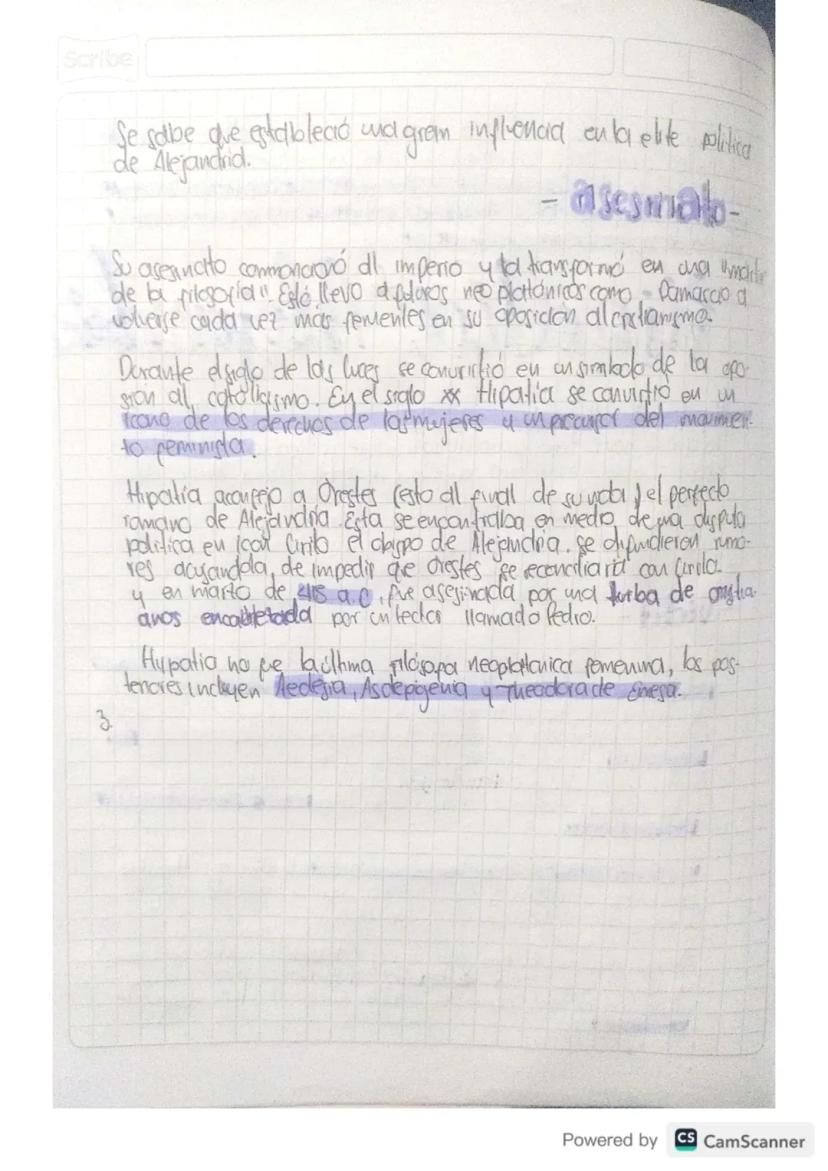 Scribe
Se sabe que estableció una gram influencia en la elite politica
de Alejandria.
- asesinato -
Su asesinato conmocionó al imperio y la transformó en una "martir
de la filosofia". Esto llevo a futuros neoplatónicos como - Damascio a
volverse cada vez mas fervientes en su oposicion al cristianismo.
Durante el siglo de las luces se convirtió en un simbolo de la opo-
sion al catolicismo. En el siglo xx Hipatia se convirtio en un
icono de los derechos de las mujeres y un precursor del movimien-
to feminista.
Hipatia aconsejo a Orestes (esto al final de su vida) el perfecto
romano de Alejandria. Esta se encontraba en medio de una disputa
politica en con Cirilo el obispo de Alejandria. se difundieron rumo-
res acusandola, de impedir que Orestes se reconciliaria con Cirilo.
y en marzo de 415 a.C, fue asesinada por una turba de cristia-
anos encabletada por un lector llamado Pedro.
Hypatia no fue la última filósofa neoplatonica femenina, las pos-
teriores incluyen Aedesia, Asclepigenia y Theodora de Emesa.
3
Powered by CS CamScanner